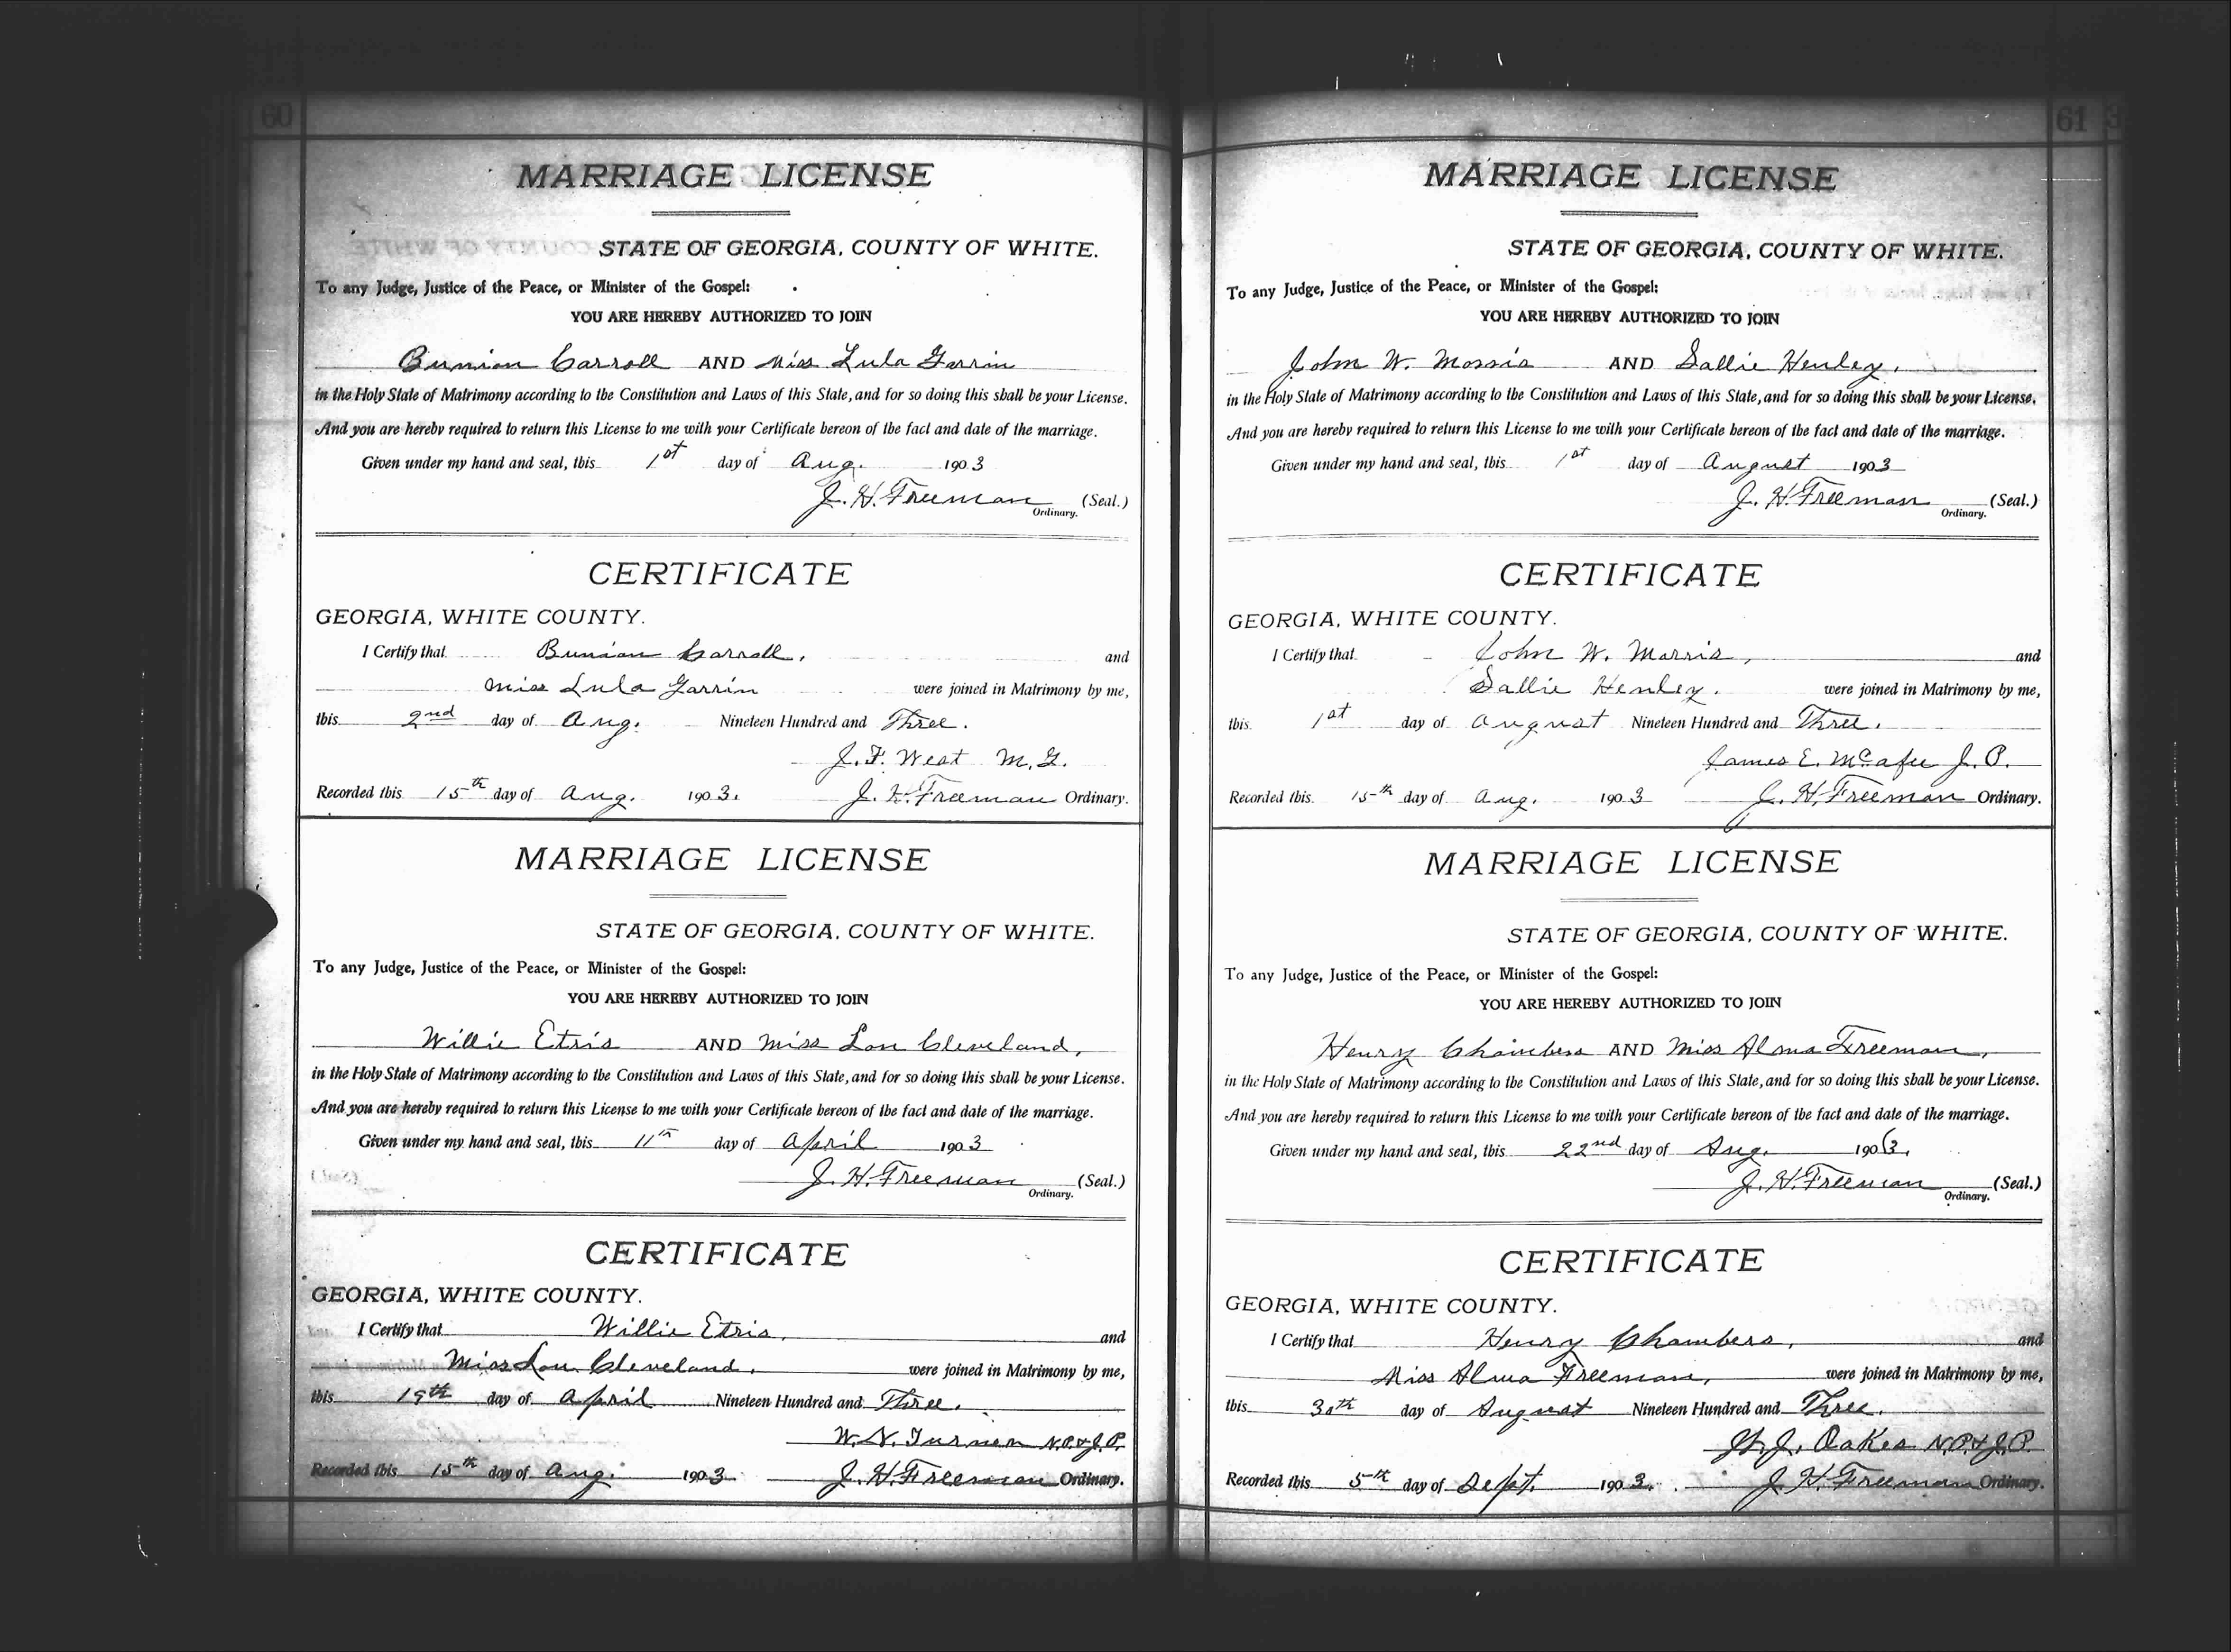 60
MARRIAGE LICENSE
STATE OF GEORGIA, COUNTY OF WHITE.
To any Judge, Justice of the Peace, or Minister of the Gospel:
YOU ARE HEREBY AUTHORIZED TO JOIN
Bunion Carroll AND Miss Lula Garrin
in the Holy State of Matrimony according to the Constitution and Laws of this State, and for so doing this shall be your License.
And you are hereby required to return this License to me with your Certificate hereon of the fact and date of the marriage.
Given under my hand and seal, this 1st day of Aug. 1903
J. H. Freeman (Seal.)
Ordinary.
CERTIFICATE
GEORGIA, WHITE COUNTY.
I Certify that Bunion Carroll, and
Miss Lula Garrin were joined in Matrimony by me,
this 2nd day of Aug. Nineteen Hundred and Three.
J. F. West M. G.
Recorded this 15th day of Aug. 1903. J. H. Freeman Ordinary.
MARRIAGE LICENSE
STATE OF GEORGIA, COUNTY OF WHITE.
To any Judge, Justice of the Peace, or Minister of the Gospel:
YOU ARE HEREBY AUTHORIZED TO JOIN
Willie Etris AND Miss Lou Cleveland,
in the Holy State of Matrimony according to the Constitution and Laws of this State, and for so doing this shall be your License.
And you are hereby required to return this License to me with your Certificate hereon of the fact and date of the marriage.
Given under my hand and seal, this 11th day of April 1903
J. H. Freeman (Seal.)
Ordinary.
CERTIFICATE
GEORGIA, WHITE COUNTY.
I Certify that Willie Etris, and
Miss Lou Cleveland, were joined in Matrimony by me,
this 19th day of April Nineteen Hundred and Three.
W. N. Turner N.P. & J.P.
Recorded this 15th day of Aug. 1903 J. H. Freeman Ordinary.
61
MARRIAGE LICENSE
STATE OF GEORGIA, COUNTY OF WHITE.
To any Judge, Justice of the Peace, or Minister of the Gospel:
YOU ARE HEREBY AUTHORIZED TO JOIN
John W. Morris AND Sallie Henley.
in the Holy State of Matrimony according to the Constitution and Laws of this State, and for so doing this shall be your License.
And you are hereby required to return this License to me with your Certificate hereon of the fact and date of the marriage.
Given under my hand and seal, this 1st day of August 1903
J. H. Freeman (Seal.)
Ordinary.
CERTIFICATE
GEORGIA, WHITE COUNTY.
I Certify that John W. Morris, and
Sallie Henley. were joined in Matrimony by me,
this 1st day of August Nineteen Hundred and Three.
James E. McAfee J. P.
Recorded this 15th day of Aug. 1903 J. H. Freeman Ordinary.
MARRIAGE LICENSE
STATE OF GEORGIA, COUNTY OF WHITE.
To any Judge, Justice of the Peace, or Minister of the Gospel:
YOU ARE HEREBY AUTHORIZED TO JOIN
Henry Chambers AND Miss Alma Freeman,
in the Holy State of Matrimony according to the Constitution and Laws of this State, and for so doing this shall be your License.
And you are hereby required to return this License to me with your Certificate hereon of the fact and date of the marriage.
Given under my hand and seal, this 22nd day of Aug. 1903.
J. H. Freeman (Seal.)
Ordinary.
CERTIFICATE
GEORGIA, WHITE COUNTY.
I Certify that Henry Chambers, and
Miss Alma Freeman, were joined in Matrimony by me,
this 30th day of August Nineteen Hundred and Three.
J. Oakes N.P. & J.P.
Recorded this 5th day of Sept. 1903. J. H. Freeman Ordinary.